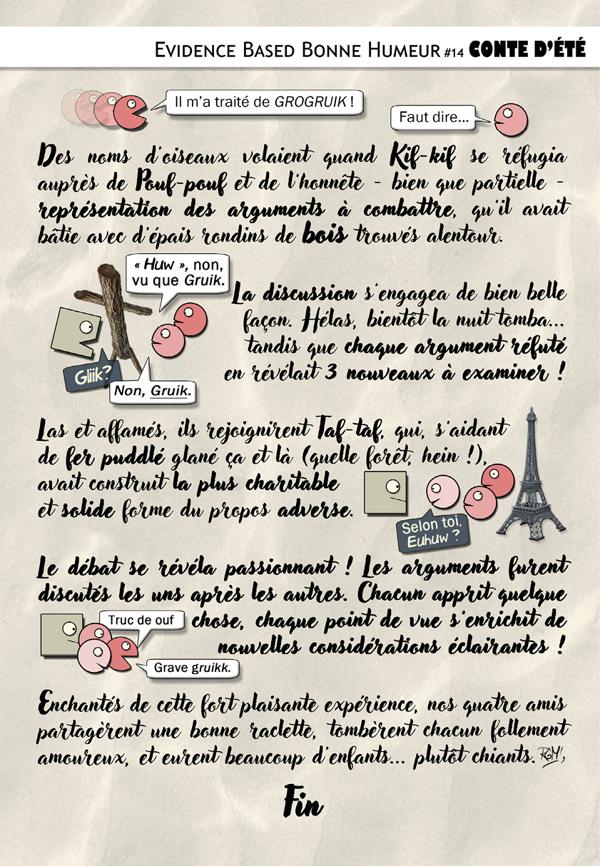 EVIDENCE BASED BONNE HUMEUR #14 CONTE D'ÉTÉ
Il m'a traité de GROGRUIK !
Faut dire...
Des noms d'oiseaux volaient quand Kif-kif se réfugia
auprès de Pouf-pouf et de l'honnête - bien que partielle -
représentation des arguments à combattre, qu'il avait
bâtie avec d'épais rondins de bois trouvés alentour.
« Huw », non,
vu que Gruik.
Gliik?
Non, Gruik.
La discussion s'engagea de bien belle
façon. Hélas, bientôt la nuit tomba...
tandis que chaque argument réfuté
en révélait 3 nouveaux à examiner !
Las et affamés, ils rejoignirent Taf-taf, qui, s'aidant
de fer puddlé glané ça et là (quelle forêt, hein !),
avait construit la plus charitable
et solide forme du propos adverse.
Selon toi,
Euhuw ?
Le débat se révéla passionnant ! Les arguments furent
discutés les uns après les autres. Chacun apprit quelque
chose, chaque point de vue s'enrichit de
nouvelles considérations éclairantes !
Truc de ouf
Grave gruikk.
Enchantés de cette fort plaisante expérience, nos quatre amis
partagèrent une bonne raclette, tombèrent chacun follement
amoureux, et eurent beaucoup d'enfants... plutôt chiants.
Fin